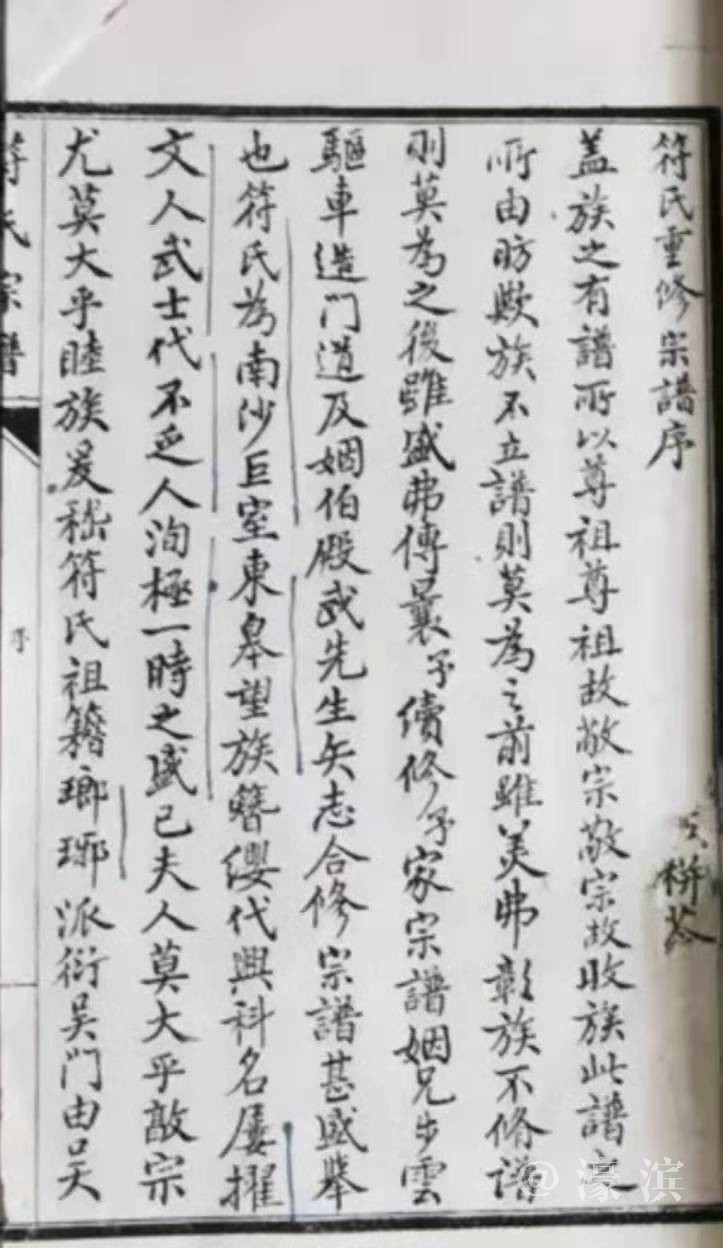 符氏重修宗譜序
盖族之有譜所以尊祖尊祖故敬宗敬宗故收族此譜之
所由昉歟族不立譜則莫為之前雖美弗彰族不脩譜
則莫為之後雖盛弗傳曩予續修予家宗譜姻兄步雲
驅車造門道及姻伯殿武先生矢志合修宗譜甚盛舉
也符氏為南沙巨室東皋望族簪纓代興科名屢擢
文人武士代不乏人洵極一時之盛已夫人莫大乎敬宗
尤莫大乎睦族爰嵇符氏祖籍瑯琊派衍吴門由吴
符氏宗譜
序
@濠滨